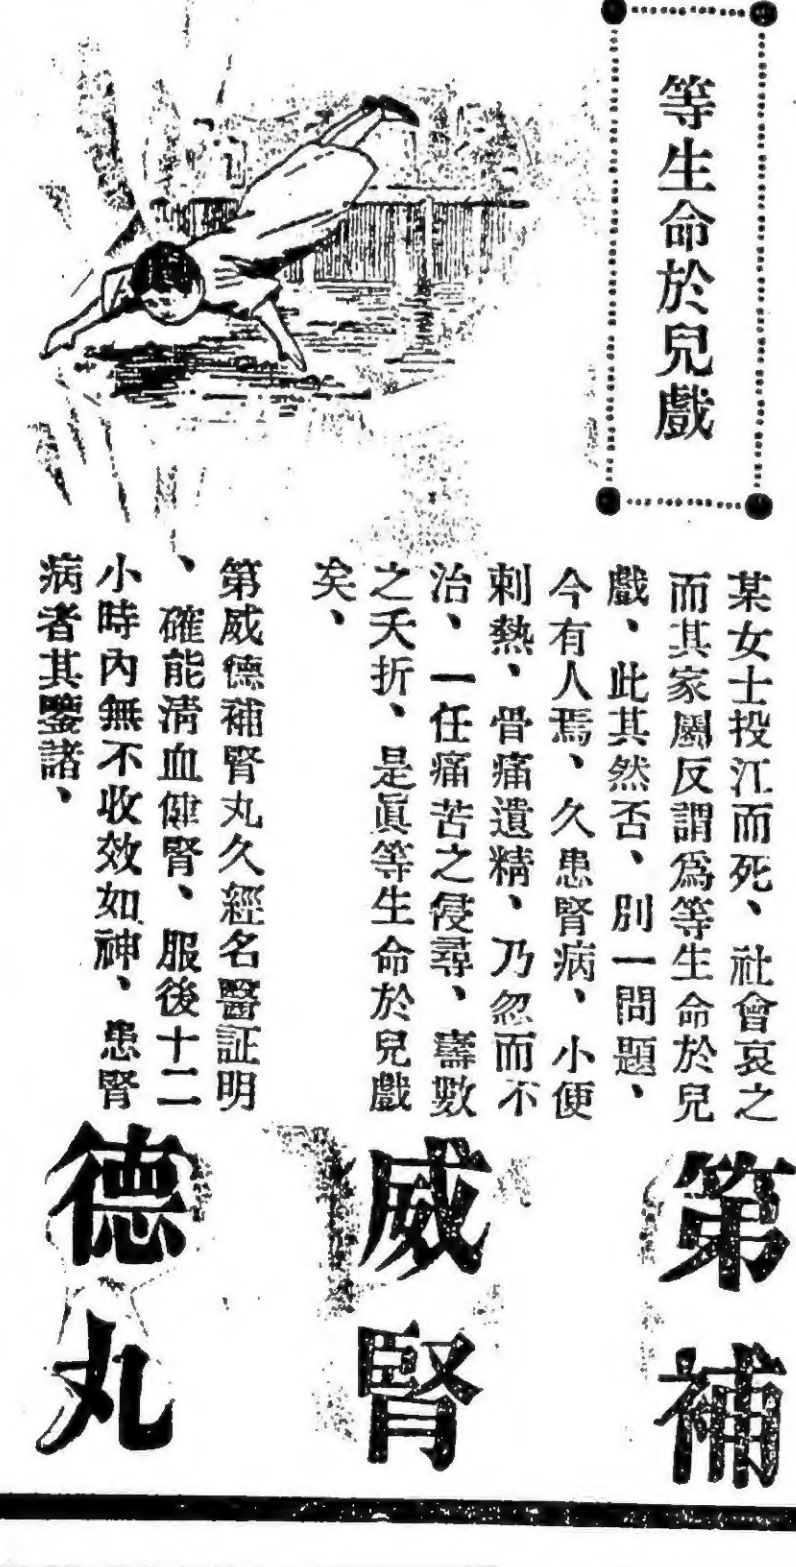 等生命於兒戲
某女士投江而死、社會哀之
而其家屬反謂爲等生命於兒
戲、此其然否、別一問題、
今有人焉、久患腎病、小便
刺熱、骨痛遺精、乃忽而不
治、一任痛苦之侵尋、壽數
之夭折、是眞等生命於兒戲
矣、
第威德補腎丸久經名醫証明
、確能清血健腎、服後十二
小時內無不收效如神、患腎
病者其鑒諸、
第威德
補腎丸